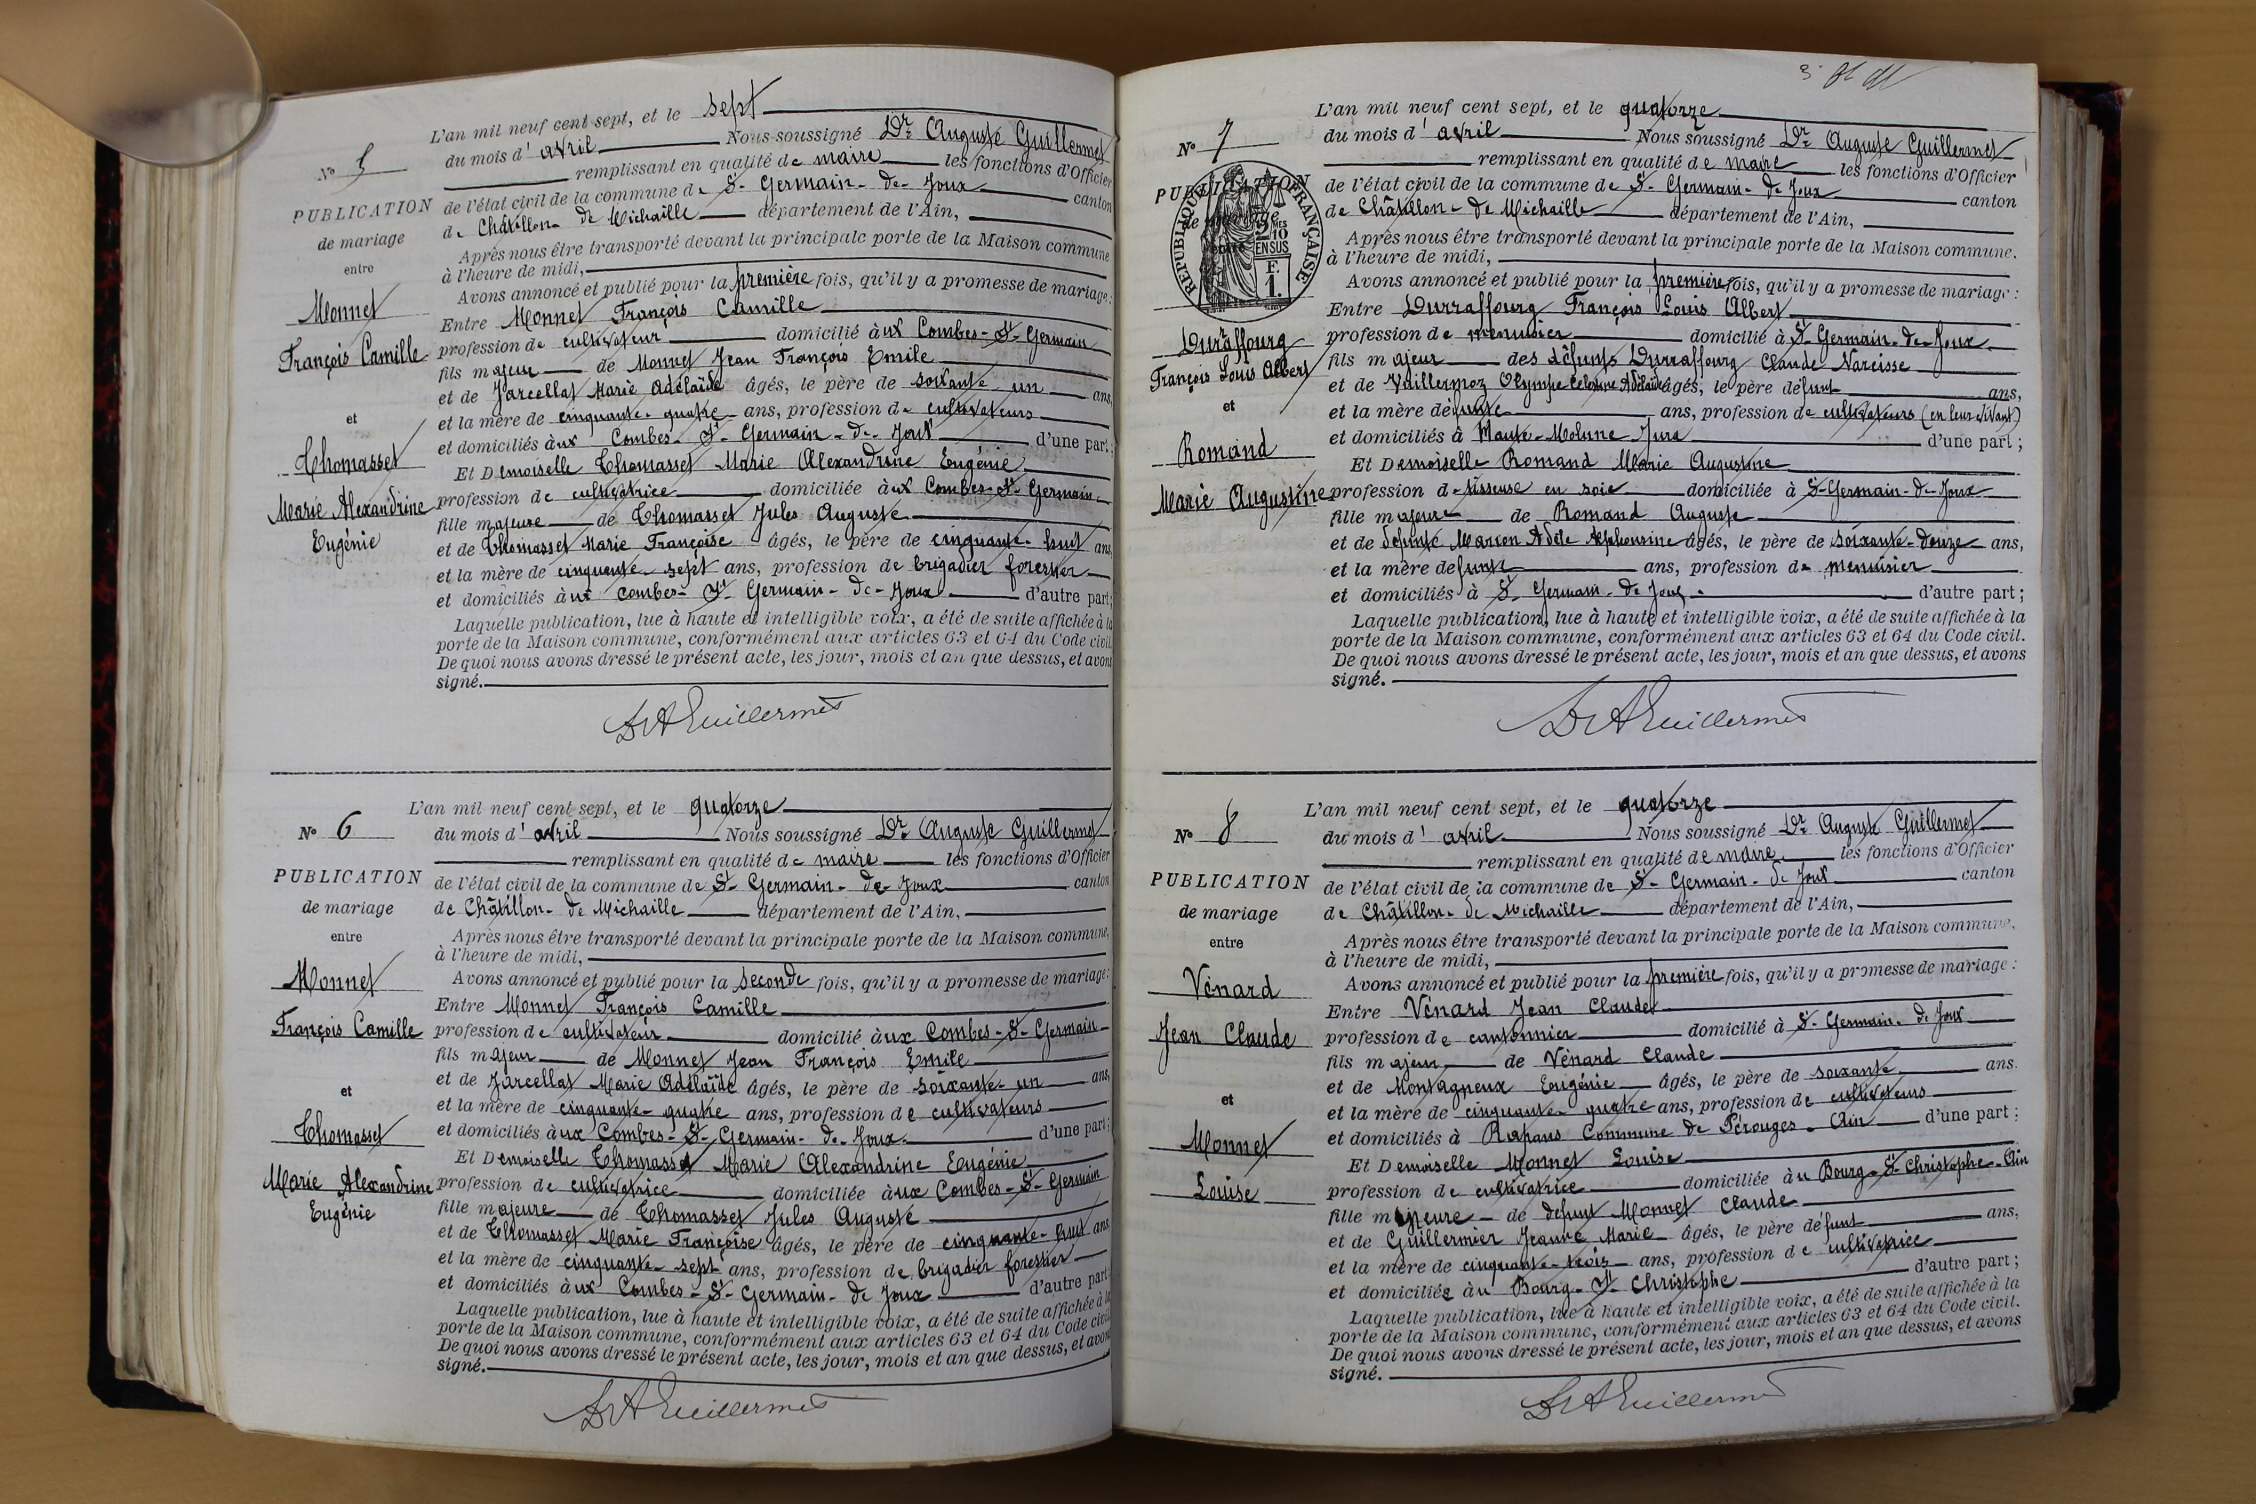 L'an mil neuf cent sept, et le sept
N° 5
du mois d'avril Nous soussigné Dr Auguste Guillermet
remplissant en qualité de maire les fonctions d'Officier
PUBLICATION
de l'état civil de la commune de St-Germain-de-Joux canton
de mariage
de Châtillon-de Michaille département de l'Ain,
entre
Après nous être transporté devant la principale porte de la Maison commune
à l'heure de midi,
Avons annoncé et publié pour la première fois, qu'il y a promesse de mariage:
Monnet
Entre Monnet François Camille
François Camille
profession de cultivateur domicilié aux Combes-St-Germain
fils majeur de Monnet Jean François Emile
et de Jarcellat Marie Adélaïde âgés, le père de soixante-un ans,
et
et la mère de cinquante-quatre ans, profession de cultivateurs
et domiciliés aux Combes-St-Germain-de-Joux d'une part;
Thomasset
Et Demoiselle Thomasset Marie Alexandrine Eugénie
Marie Alexandrine
profession de cultivatrice domiciliée aux Combes-St-Germain
Eugénie
fille majeure de Thomasset Jules Auguste
et de Thomasset Marie Françoise âgés, le père de cinquante-huit ans
et la mère de cinquante-sept ans, profession de brigadier forestier
et domiciliés aux Combes-St-Germain-de-Joux d'autre part;
Laquelle publication, lue à haute et intelligible voix, a été de suite affichée à la
porte de la Maison commune, conformément aux articles 63 et 64 du Code civil.
De quoi nous avons dressé le présent acte, les jour, mois et an que dessus, et avons
signé.
Dr A Guillermet
L'an mil neuf cent sept, et le quatorze
N° 6
du mois d'avril Nous soussigné Dr Auguste Guillermet
remplissant en qualité de maire les fonctions d'Officier
PUBLICATION
de l'état civil de la commune de St-Germain-de-Joux canton
de mariage
de Châtillon-de Michaille département de l'Ain,
entre
Après nous être transporté devant la principale porte de la Maison commune,
à l'heure de midi,
Avons annoncé et publié pour la seconde fois, qu'il y a promesse de mariage:
Monnet
Entre Monnet François Camille
François Camille
profession de cultivateur domicilié aux Combes-St-Germain
fils majeur de Monnet Jean François Emile
et de Jarcellat Marie Adélaïde âgés, le père de soixante-un ans,
et
et la mère de cinquante-quatre ans, profession de cultivateurs
et domiciliés aux Combes-St-Germain-de-Joux d'une part;
Thomasset
Et Demoiselle Thomasset Marie Alexandrine Eugénie
Marie Alexandrine
profession de cultivatrice domiciliée aux Combes-St-Germain
Eugénie
fille majeure de Thomasset Jules Auguste
et de Thomasset Marie Françoise âgés, le père de cinquante-huit ans
et la mère de cinquante-sept ans, profession de brigadier forestier
et domiciliés aux Combes-St-Germain-de Joux d'autre part
Laquelle publication, lue à haute et intelligible voix, a été de suite affichée à la
porte de la Maison commune, conformément aux articles 63 et 64 du Code civil
De quoi nous avons dressé le présent acte, les jour, mois et an que dessus, et avons
signé.
Dr A Guillermet
L'an mil neuf cent sept, et le quatorze
N° 7
du mois d'avril Nous soussigné Dr Auguste Guillermet
remplissant en qualité de maire les fonctions d'Officier
PUBLICATION
de l'état civil de la commune de St-Germain-de Joux canton
de mariage
de Châtillon-de Michaille département de l'Ain,
RÉPUBLIQUE FRANÇAISE
2 MES 10
ENSUS
F. 1.
Après nous être transporté devant la principale porte de la Maison commune.
à l'heure de midi,
Avons annoncé et publié pour la première fois, qu'il y a promesse de mariage:
Entre Durraffourg François Louis Albert
Duraffourg
profession de menuisier domicilié à St-Germain-de-Joux
François Louis Albert
fils majeur des défunts Durraffourg Claude Narcisse
et de Vuillermoz Olympe Célestine Adélaïde âgés, le père défunt ans,
et
et la mère défunte ans, profession de cultivateurs (en leur vivant)
et domiciliés à Haute-Molune Jura d'une part;
Romand
Et Demoiselle Romand Marie Augustine
Marie Augustine
profession de tisseuse en soie domiciliée à St-Germain-de-Joux
fille majeure de Romand Auguste
et de défunte Marion Adèle Alphonsine âgés, le père de soixante-douze ans,
et la mère défunte ans, profession de menuisier
et domiciliés à St-Germain-de Joux. d'autre part;
Laquelle publication, lue à haute et intelligible voix, a été de suite affichée à la
porte de la Maison commune, conformément aux articles 63 et 64 du Code civil.
De quoi nous avons dressé le présent acte, les jour, mois et an que dessus, et avons
signé.
Dr A Guillermet
L'an mil neuf cent sept, et le quatorze
N° 8
du mois d'avril Nous soussigné Dr Auguste Guillermet
remplissant en qualité de maire les fonctions d'Officier
PUBLICATION
de l'état civil de la commune de St-Germain-de Joux canton
de mariage
de Châtillon-de Michaille département de l'Ain,
entre
Après nous être transporté devant la principale porte de la Maison commune,
à l'heure de midi,
Avons annoncé et publié pour la première fois, qu'il y a promesse de mariage:
Vénard
Entre Vénard Jean Claude
Jean Claude
profession de cantonnier domicilié à St-Germain-de Joux
fils majeur de Vénard Claude
et de Montagneux Eugénie âgés, le père de soixante ans.
et
et la mère de cinquante-quatre ans, profession de cultivateurs
et domiciliés à Rapans Commune de Pérouges-Ain d'une part;
Monnet
Et Demoiselle Monnet Louise
Louise
profession de cultivatrice domiciliée au Bourg-St-Christophe-Ain
fille majeure de défunt Monnet Claude
et de Guillermier Jeanne Marie âgés, le père défunt ans,
et la mère de cinquante-trois ans, profession de cultivatrice
et domiciliée au Bourg-St-Christophe d'autre part;
Laquelle publication, lue à haute et intelligible voix, a été de suite affichée à la
porte de la Maison commune, conformément aux articles 63 et 64 du Code civil.
De quoi nous avons dressé le présent acte, les jour, mois et an que dessus, et avons
signé.
Dr A Guillermet